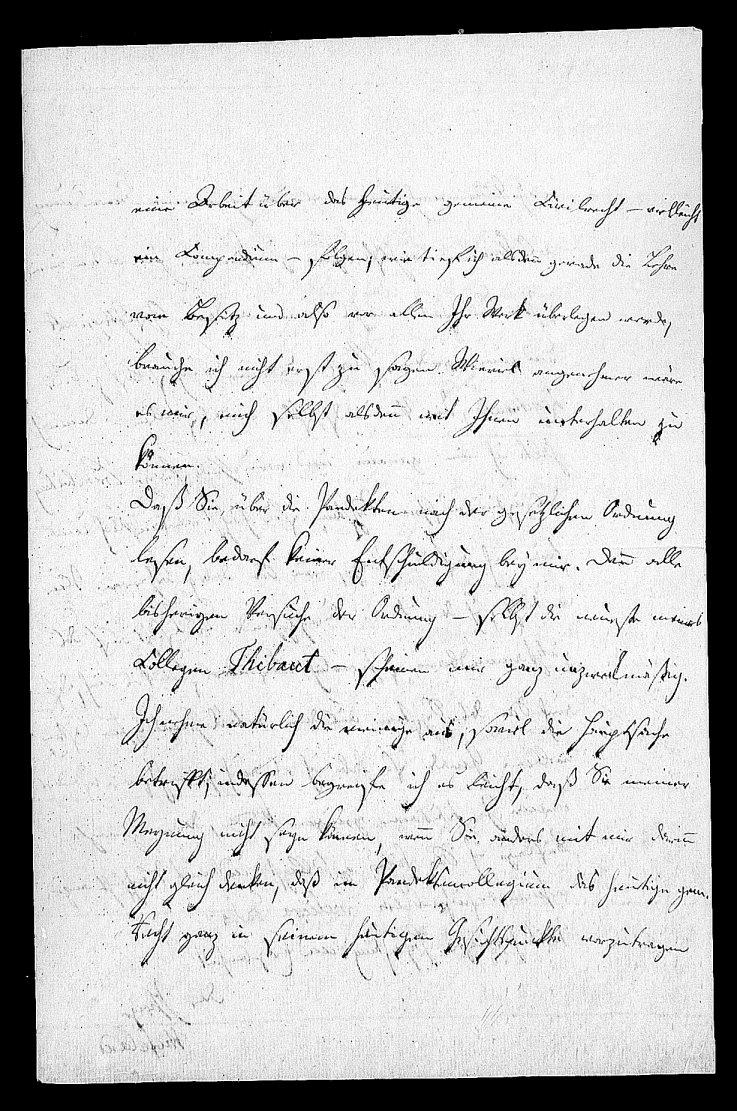 eine Arbeit über das heutige gemeine Civilrecht – vielleicht
ein Compendium – folgen; wie tief ich alsdenn gerade die Lehre
vom Besitz und also vor allem Ihr Werk überlegen werde,
brauche ich nicht erst zu sagen. Wieviel angenehmer wäre
es mir, mich selbst alsdenn mit Ihnen unterhalten zu
können.
Daß Sie über die Pandekten nach der gesetzlichen Ordnung
lesen, bedarf keiner Entschuldigung bey mir. Denn alle
bisherigen Versuche der Ordnung – selbst die neueste meines
Collegen Thibaut – scheinen mir ganz unzweckmäßig.
Ich nehme natürlich die meinige aus, soviel die Hauptsache
betrifft; indessen begreife ich es leicht, daß Sie meiner
Meynung nicht seyn können, wenn Sie anders mit mir darin
nicht gleich denken, daß im Pandektencollegium das heutige gem.
Recht ganz in seinem heutigen Gesichtspunkte vorzutragen